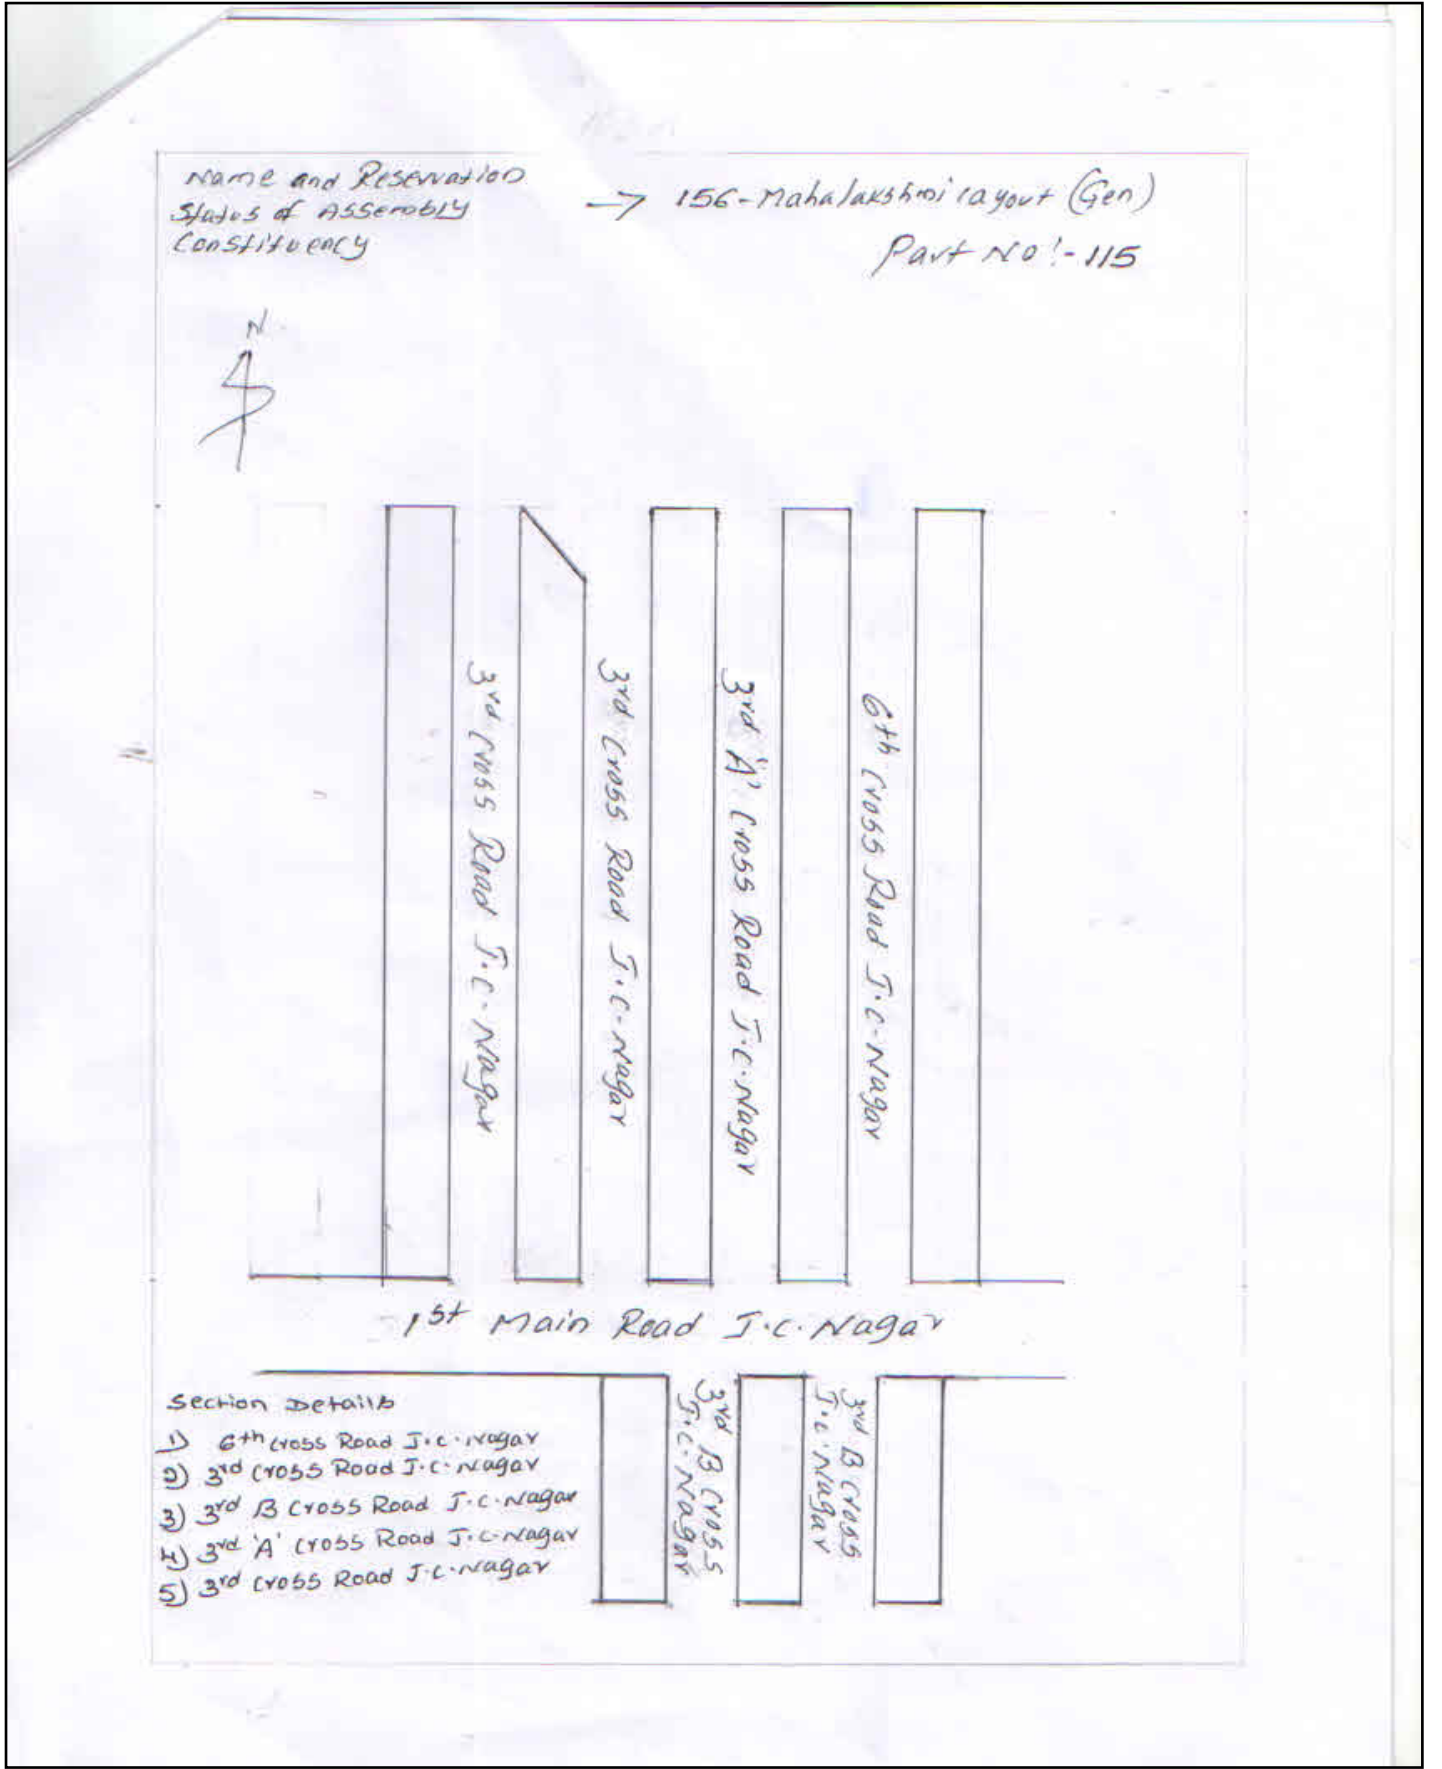 Name and Reservation
Status of Assembly
Constituency
→ 156-Mahalakshmi Layout (Gen)
Part No:- 115
N
3rd Cross Road J.C. Nagar
3rd Cross Road J.C. Nagar
3rd 'A' Cross Road J.C. Nagar
6th Cross Road J.C. Nagar
1st Main Road J.C. Nagar
3rd B Cross
J.C. Nagar
3rd B Cross
J.C. Nagar
Section Details
1) 6th Cross Road J.C. Nagar
2) 3rd Cross Road J.C. Nagar
3) 3rd B Cross Road J.C. Nagar
4) 3rd 'A' Cross Road J.C. Nagar
5) 3rd Cross Road J.C. Nagar